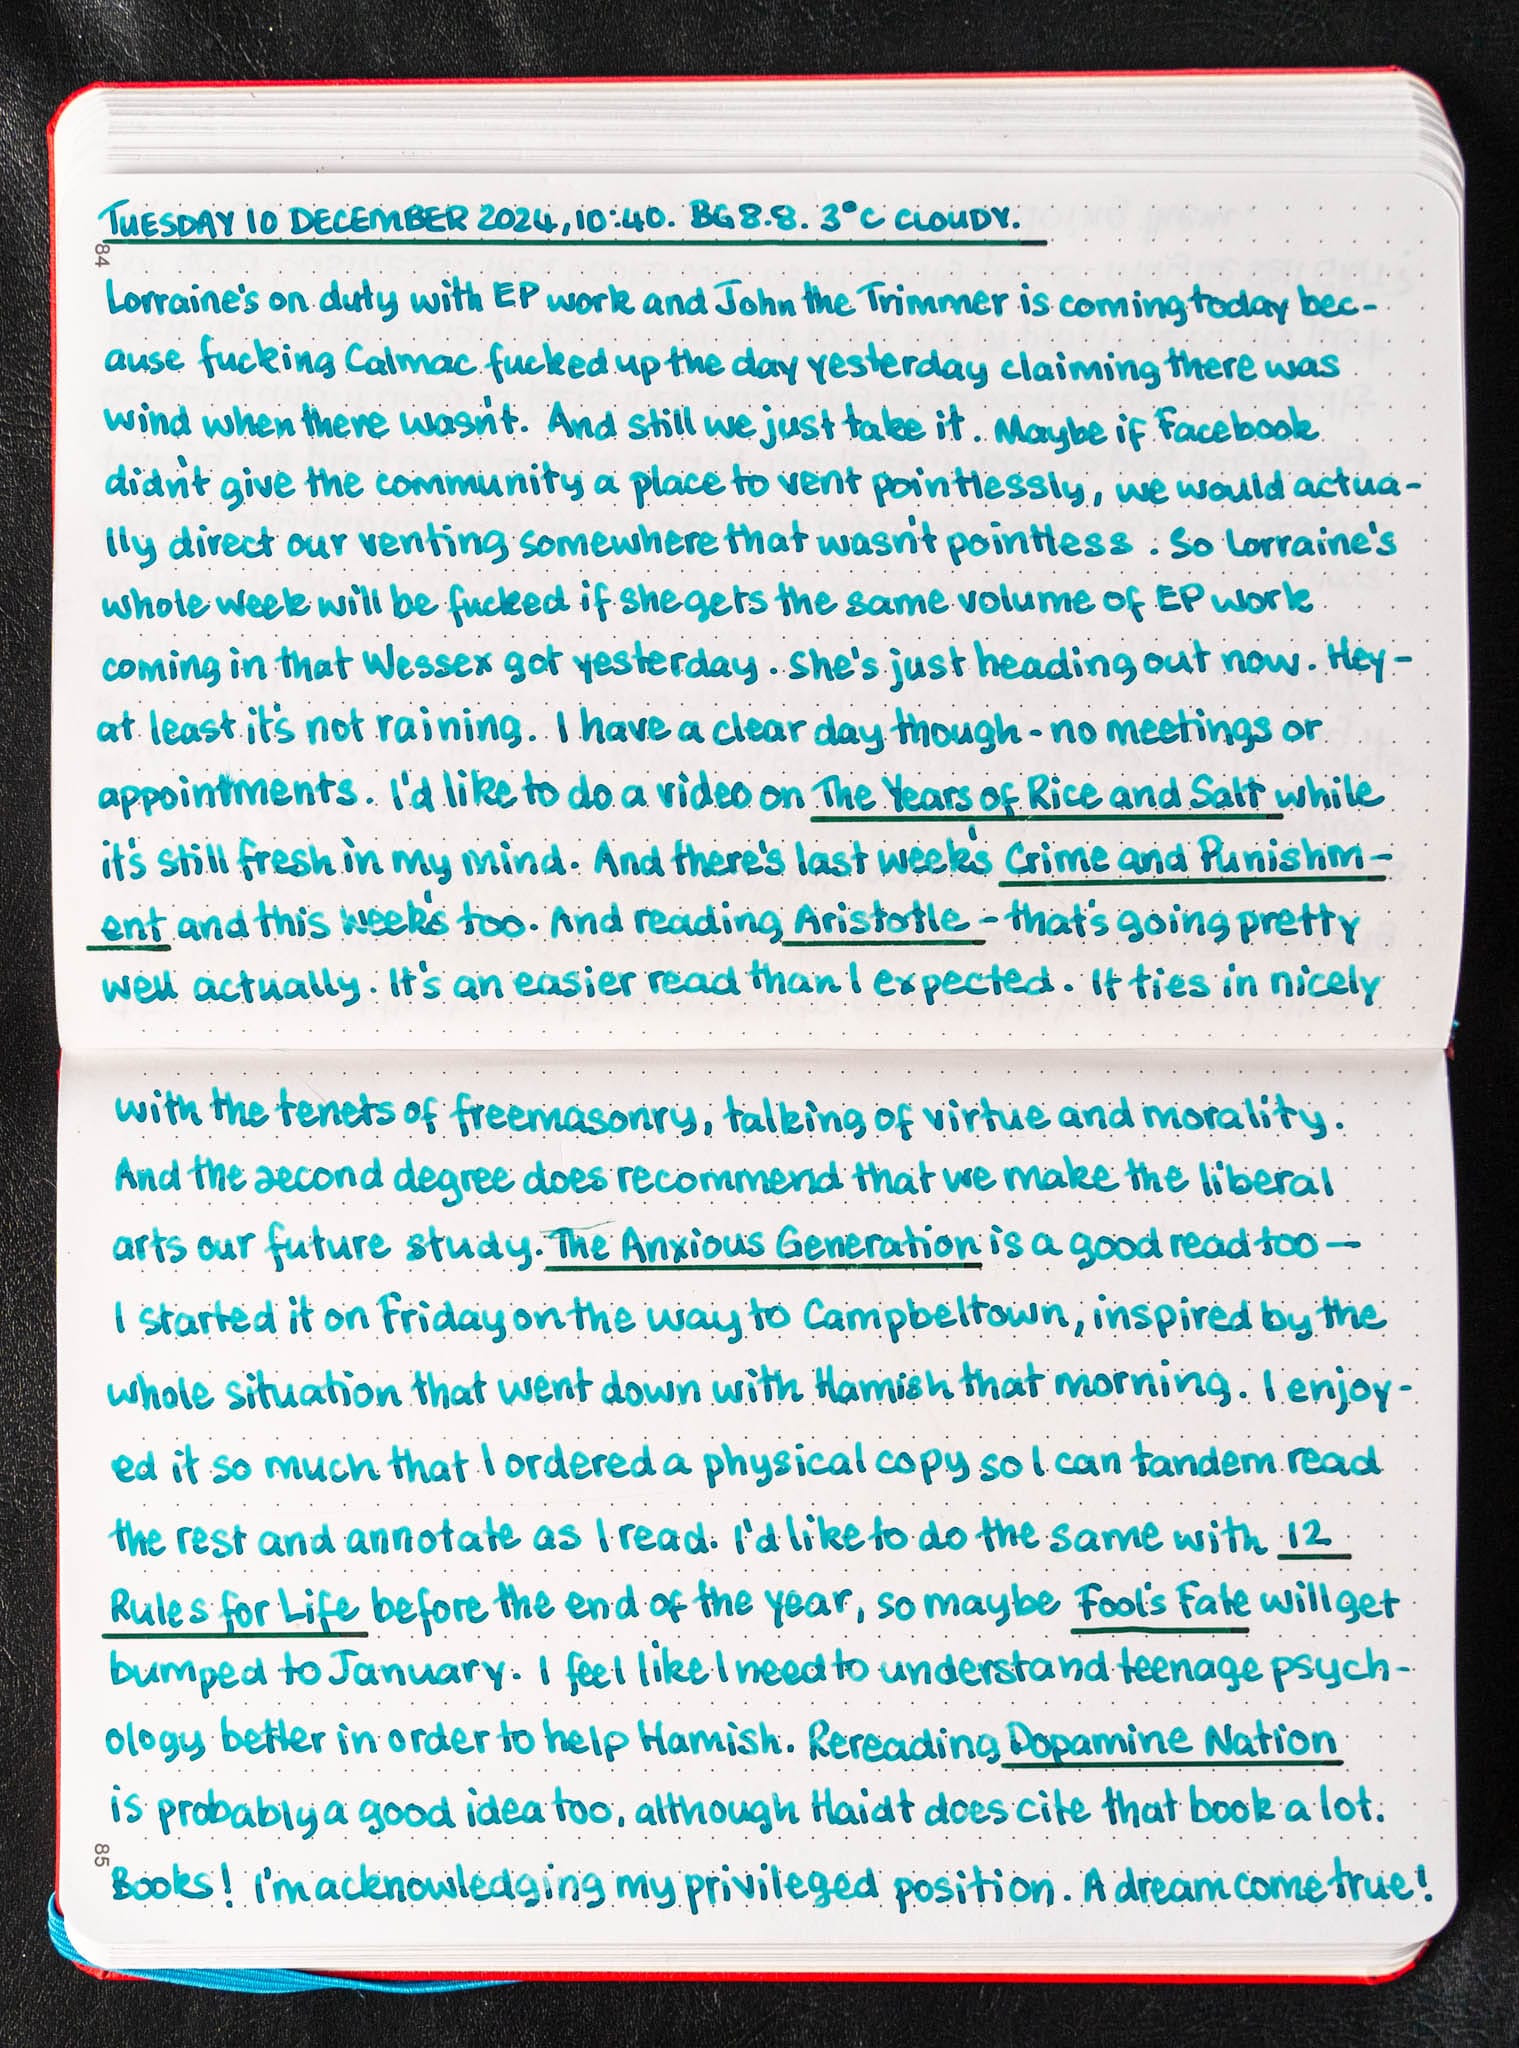 TUESDAY 10 DECEMBER 2024, 10:40. BG 8.8. 3°C CLOUDY.
84
Lorraine's on duty with EP work and John the Trimmer is coming today bec-
ause fucking Calmac fucked up the day yesterday claiming there was
wind when there wasn't. And still we just take it. Maybe if Facebook
didn't give the community a place to vent pointlessly, we would actua-
lly direct our venting somewhere that wasn't pointless. So Lorraine's
whole week will be fucked if she gets the same volume of EP work
coming in that Wessex got yesterday. She's just heading out now. Hey-
at least it's not raining. I have a clear day though - no meetings or
appointments. I'd like to do a video on The Years of Rice and Salt while
it's still fresh in my mind. And there's last week's Crime and Punishm-
ent and this week's too. And reading Aristotle - that's going pretty
well actually. It's an easier read than I expected. It ties in nicely
with the tenets of freemasonry, talking of virtue and morality.
And the second degree does recommend that we make the liberal
arts our future study. The Anxious Generation is a good read too —
I started it on Friday on the way to Campbeltown, inspired by the
whole situation that went down with Hamish that morning. I enjoy-
ed it so much that I ordered a physical copy so I can tandem read
the rest and annotate as I read. I'd like to do the same with 12
Rules for Life before the end of the year, so maybe Fool's Fate will get
bumped to January. I feel like I need to understand teenage psych-
ology better in order to help Hamish. Rereading Dopamine Nation
is probably a good idea too, although Haidt does cite that book a lot.
85
Books! I'm acknowledging my privileged position. A dream come true!